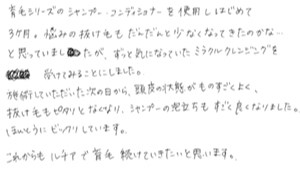 育毛シリーズのシャンプー・コンディショナーを使用しはじめて
3ヶ月。悩みの抜け毛もだんだんと少なくなってきたのかな…
と思っていましたが、ずっと気になっていたミラクルクレンジングを
受けてみることにしました。
施術していただいた次の日から、頭皮の状態がものすごくよく、
抜け毛もピタリとなくなり、シャンプーの泡立ちもすごく良くなりました。
ほんとうにビックリしています。
これからもルチアで育毛続けていきたいと思います。